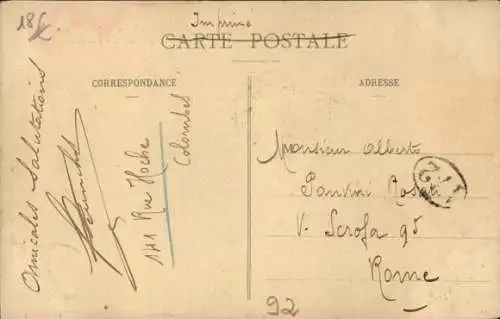 18
Imprimé
CARTE POSTALE
CORRESPONDANCE
ADRESSE
Amicales Salutations
141 Rue Hoche
Colombes
Monsieur Alberto
Panvini Ros
V. Scrofa 95
Rome
92